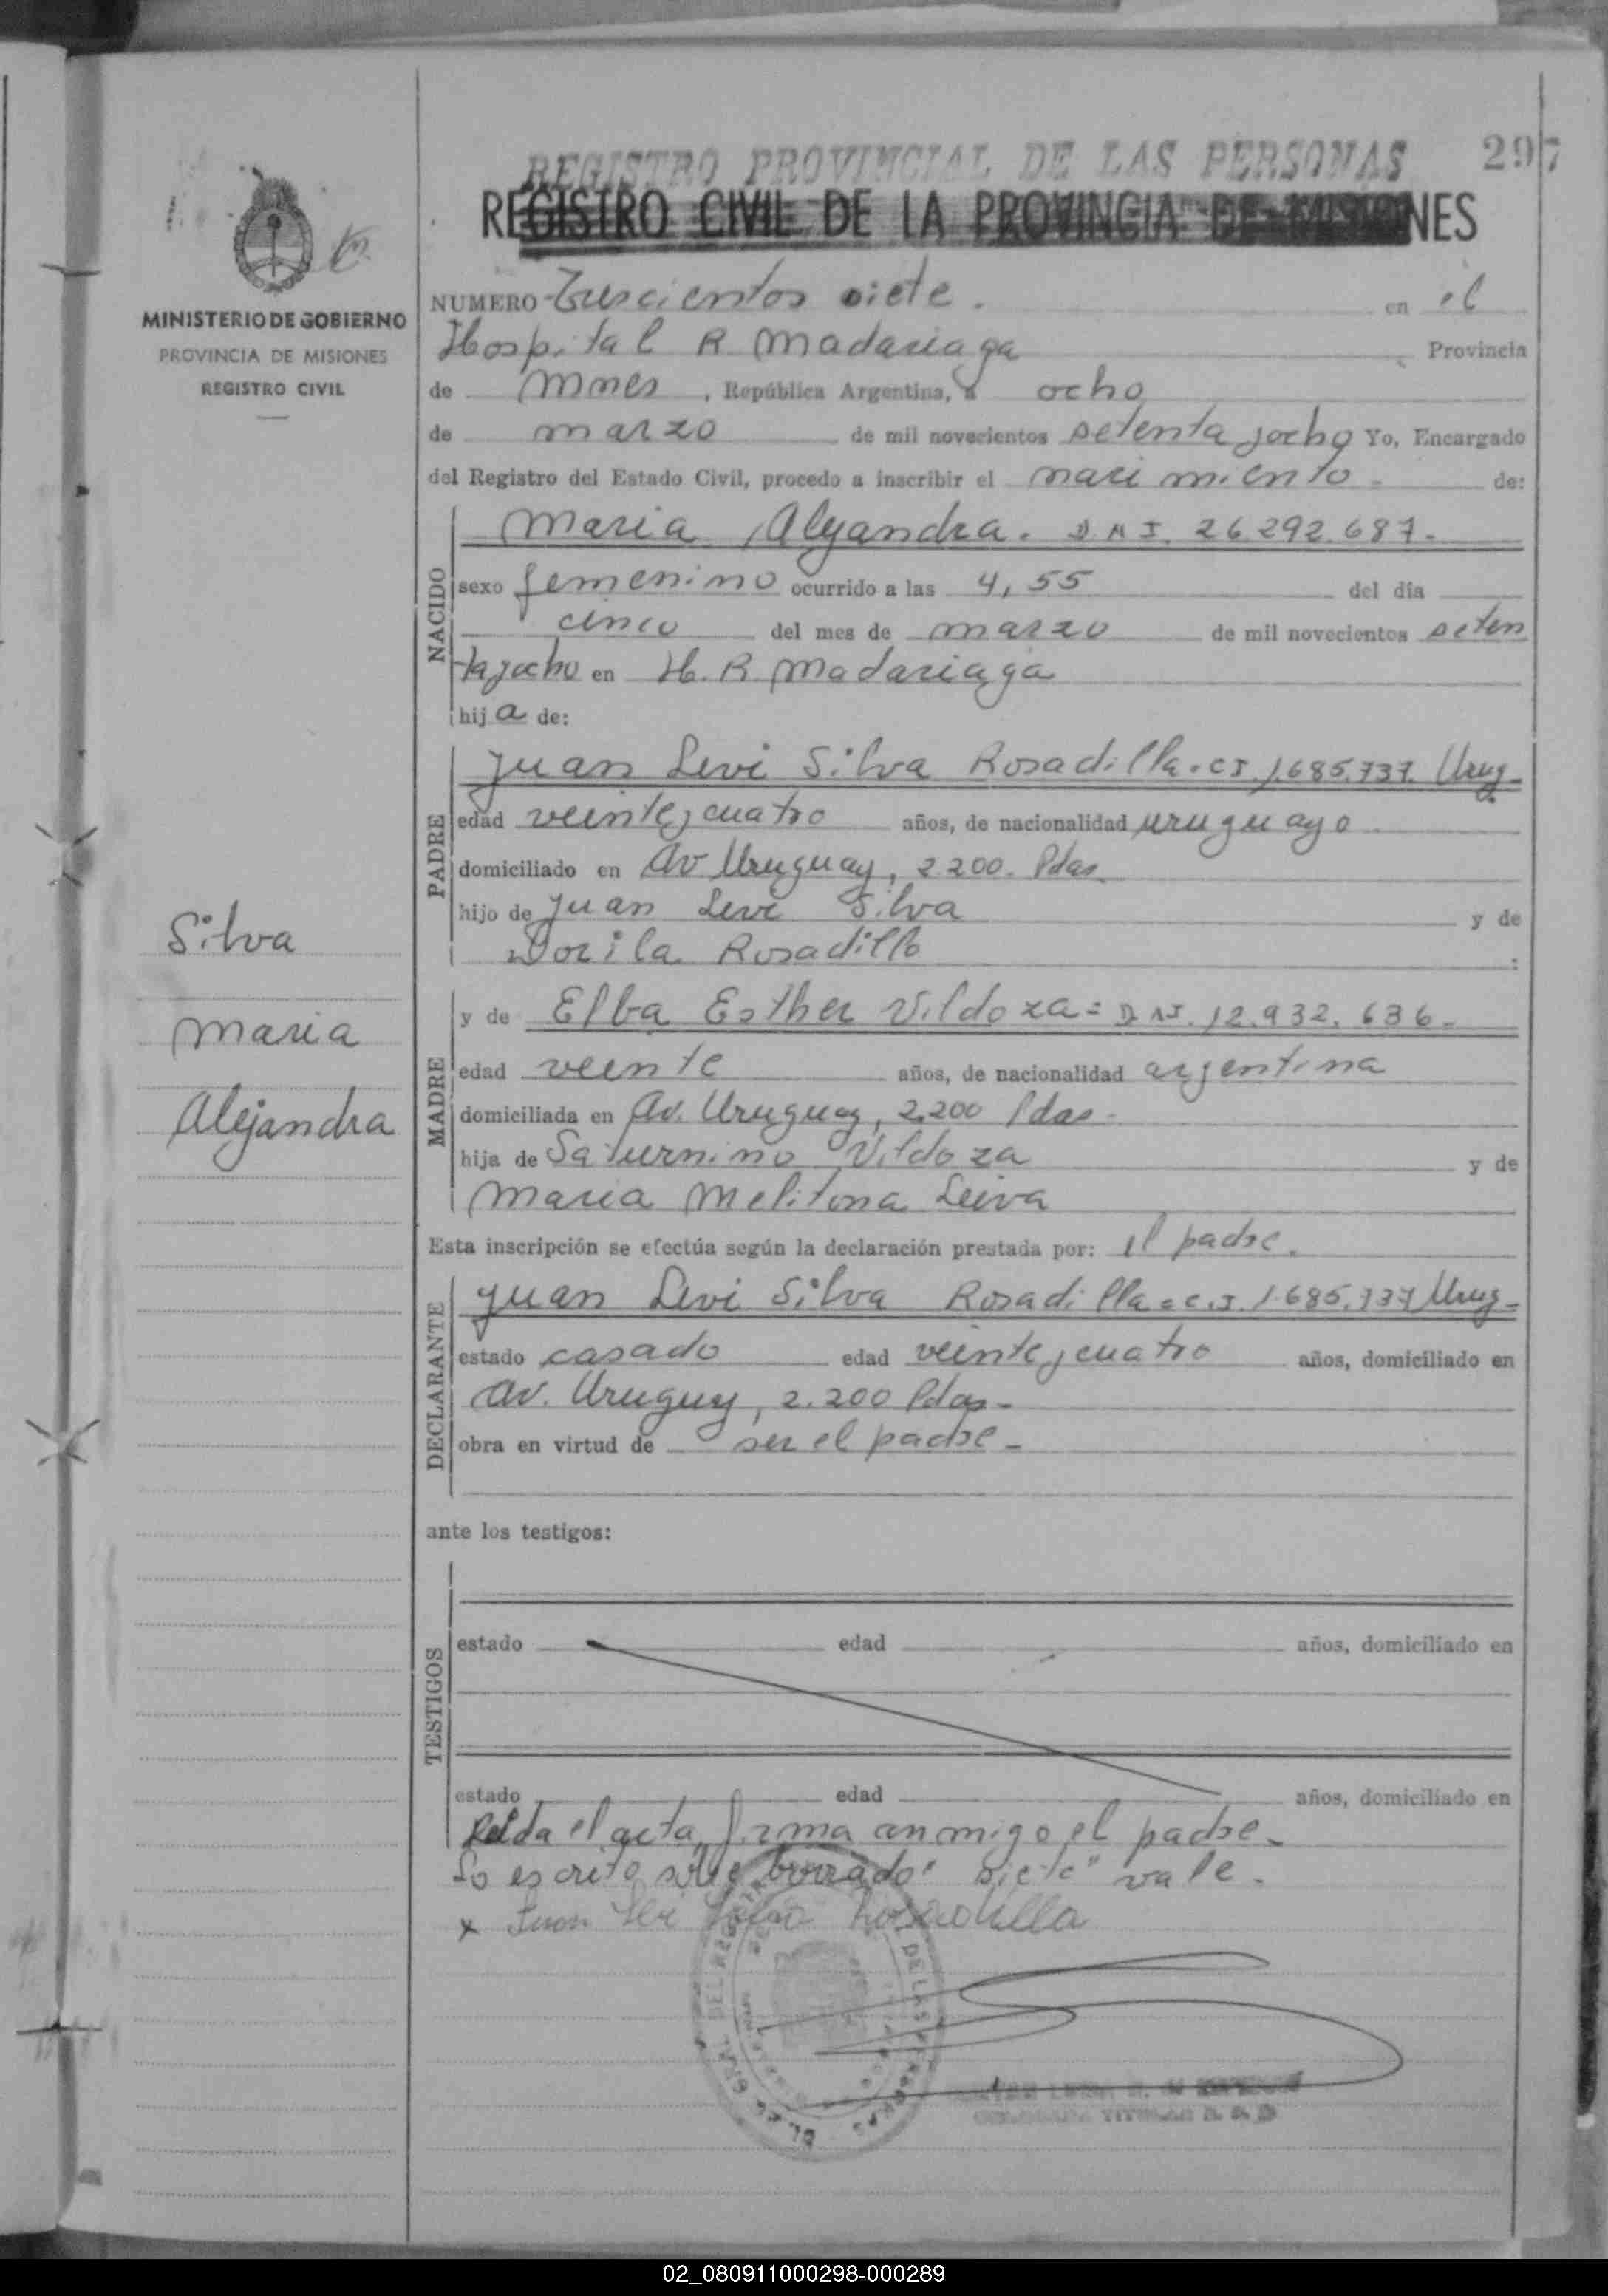 297
REGISTRO PROVINCIAL DE LAS PERSONAS
REGISTRO CIVIL DE LA PROVINCIA DE MISIONES
MINISTERIO DE GOBIERNO
PROVINCIA DE MISIONES
REGISTRO CIVIL
Silva
Maria
Alejandra
NUMERO Trescientos siete. en el
Hospital R Madariaga Provincia
de Mnes, República Argentina, a ocho
de marzo de mil novecientos setenta y ocho Yo, Encargado
del Registro del Estado Civil, procedo a inscribir el nacimiento - de:
NACIDO
Maria Alejandra. D.N.I. 26.292.687.-
sexo femenino ocurrido a las 4,55 del día
cinco del mes de marzo de mil novecientos seten
ta y ocho en H. R Madariaga
hija de:
PADRE
Juan Levi Silva Rosadilla. CI. 1.685.737. Urug-
edad veinte y cuatro años, de nacionalidad uruguayo
domiciliado en Av Uruguay, 2.200. Pdas.
hijo de Juan Levi Silva y de
Dorila Rosadillo :
MADRE
y de Elba Esther Vildoza = D.N.I. 12.932.636-
edad veinte años, de nacionalidad argentina
domiciliada en Av. Uruguay, 2.200 Pdas-
hija de Saturnino Vildoza y de
Maria Melitona Leiva
Esta inscripción se efectúa según la declaración prestada por: el padre.
DECLARANTE
Juan Levi Silva Rosadilla = C.I. 1.685.737 Urug-
estado casado edad veinte y cuatro años, domiciliado en
Av. Uruguay, 2.200 Pdas-
obra en virtud de ser el padre-
ante los testigos:
TESTIGOS
estado edad años, domiciliado en
estado edad años, domiciliado en
Leida el acta, firma conmigo el padre-
Lo escrito sobre borrado "siete" vale.
x Juan Levi Silva Rosadilla
TITULAR
02_080911000298-000289